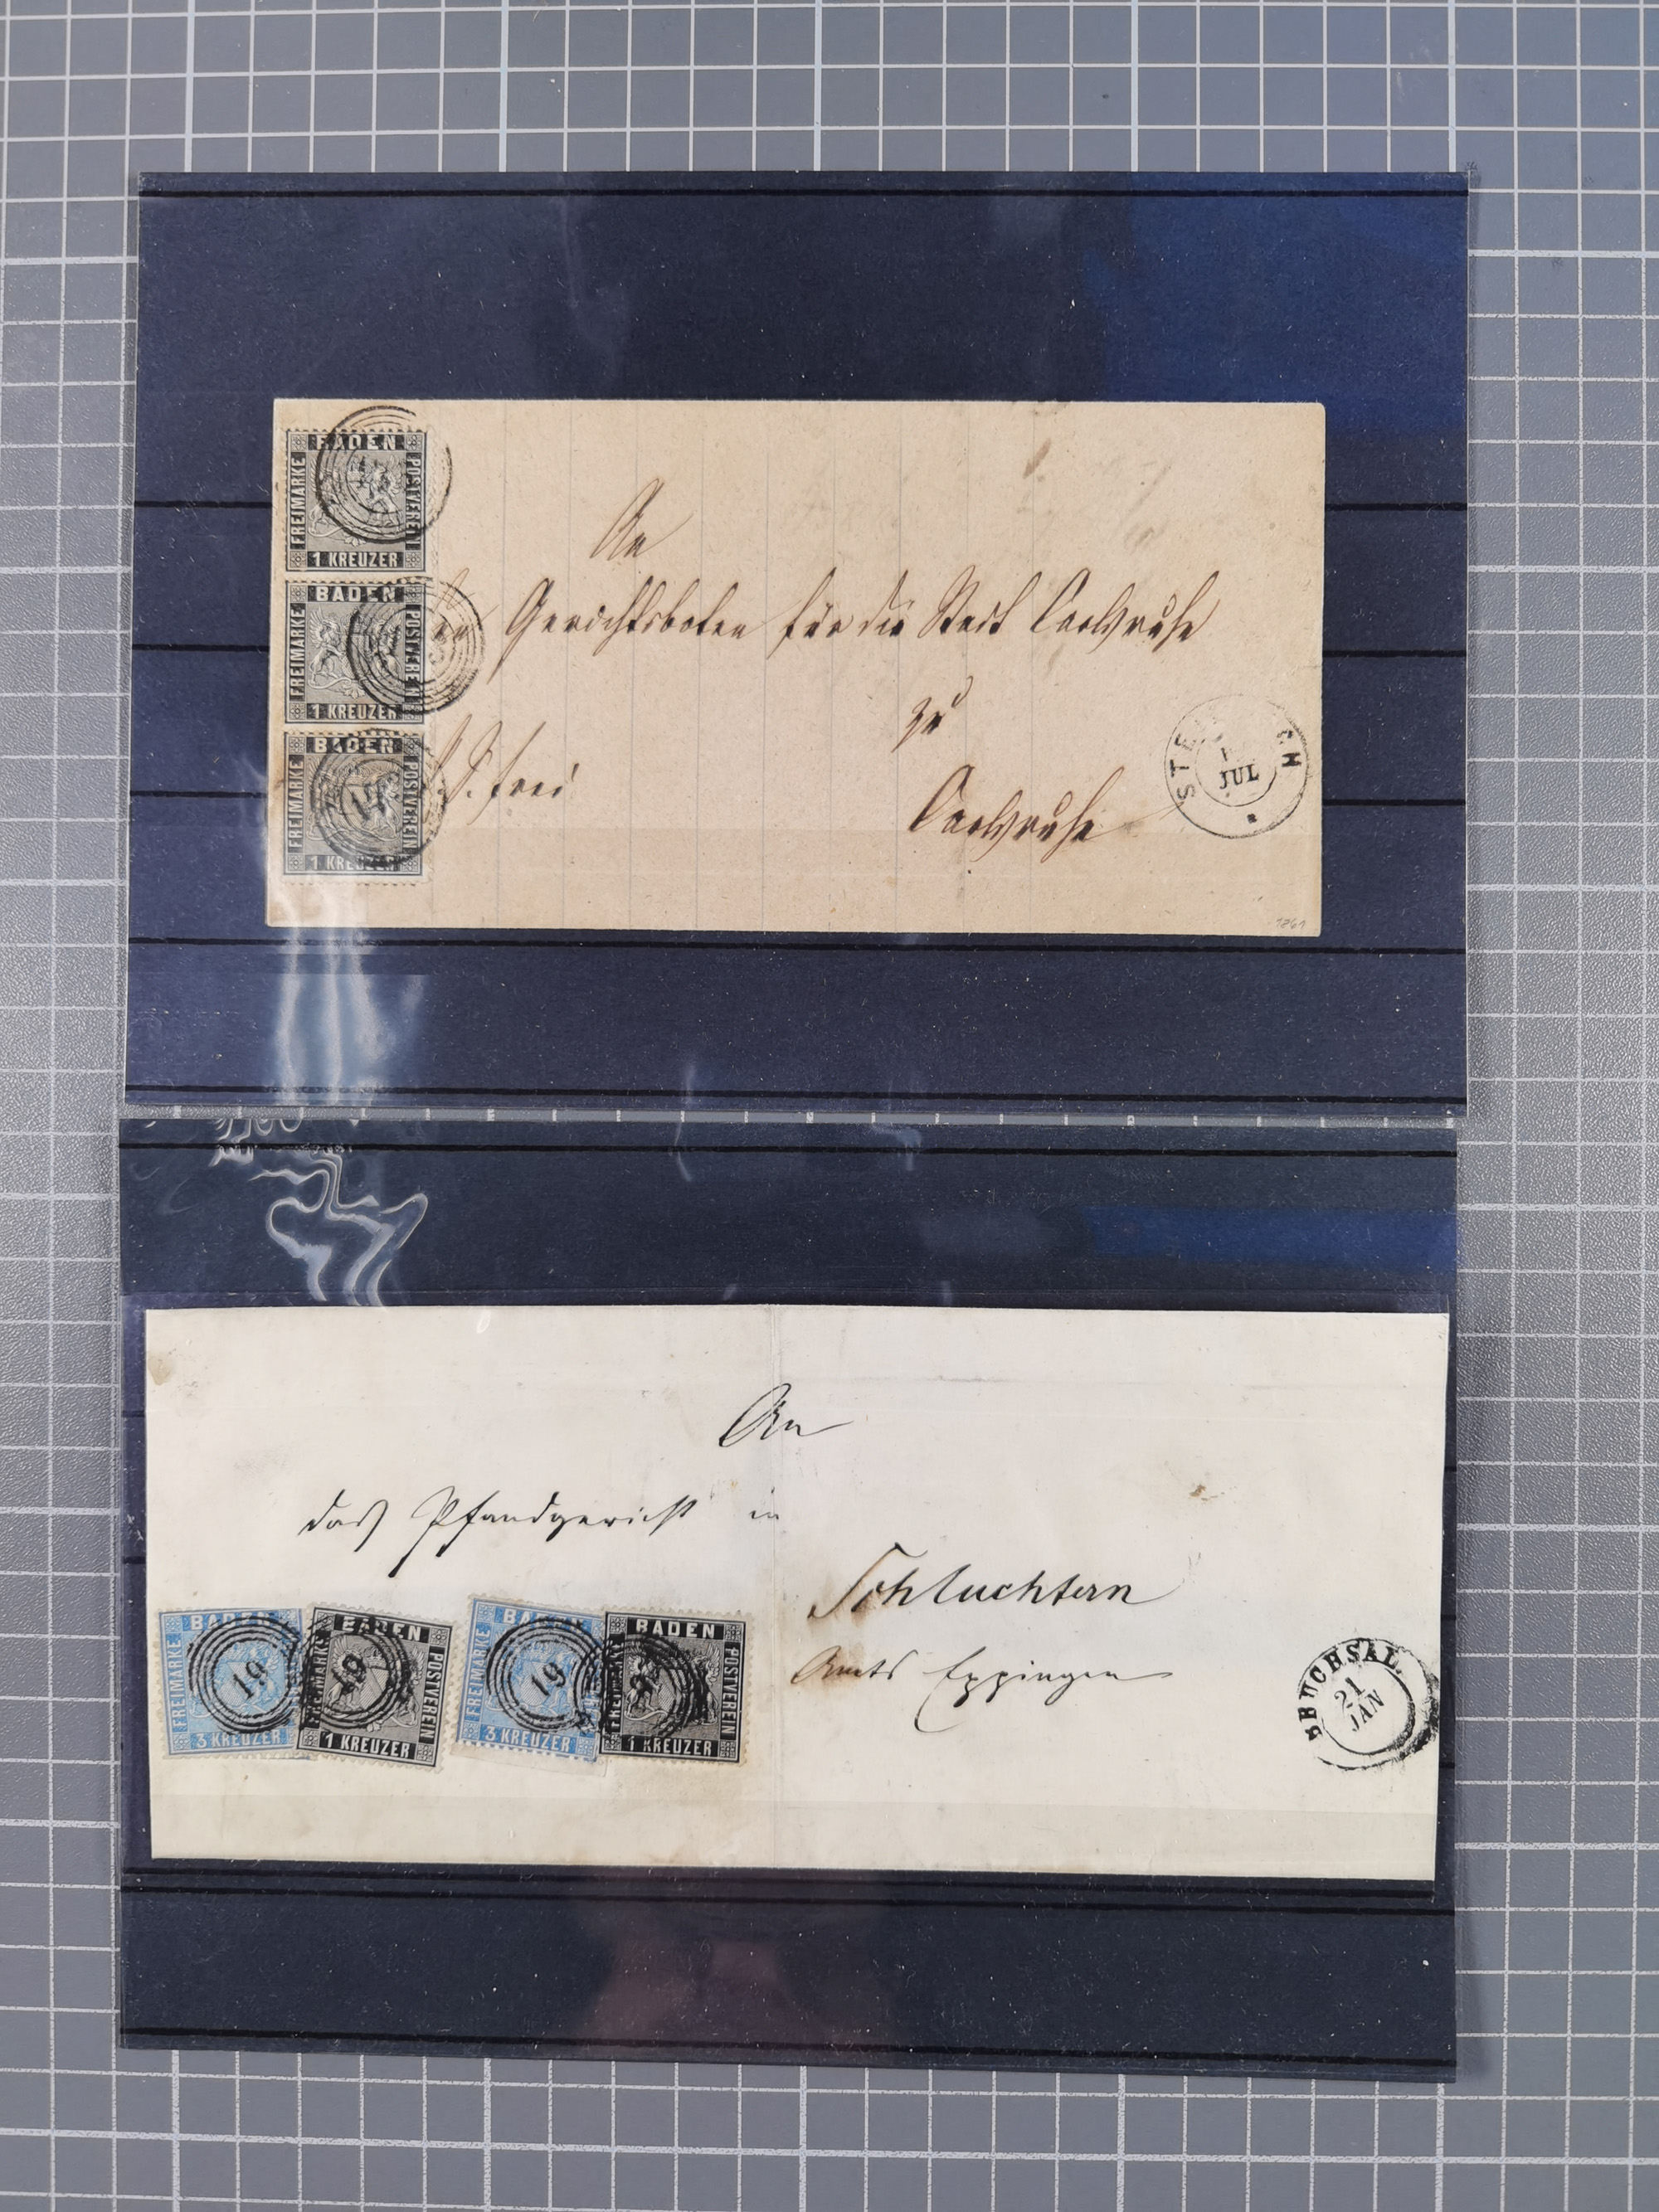 BADEN
FREIMARKE
POSTVEREIN
1 KREUZER
BADEN
FREIMARKE
POSTVEREIN
1 KREUZER
BADEN
FREIMARKE
POSTVEREIN
1 KREUZER
An
Gerichtsboten für die Stadt Carlsruhe
zu
Carlsruhe
frei
JUL
1861
An
das Pfandgericht in
Schluchtern
Amts Eppingen
BADEN
FREIMARKE
3 KREUZER
19
BADEN
FREIMARKE
POSTVEREIN
1 KREUZER
19
BADEN
FREIMARKE
3 KREUZER
19
BADEN
FREIMARKE
POSTVEREIN
1 KREUZER
BRUCHSAL
21
JAN